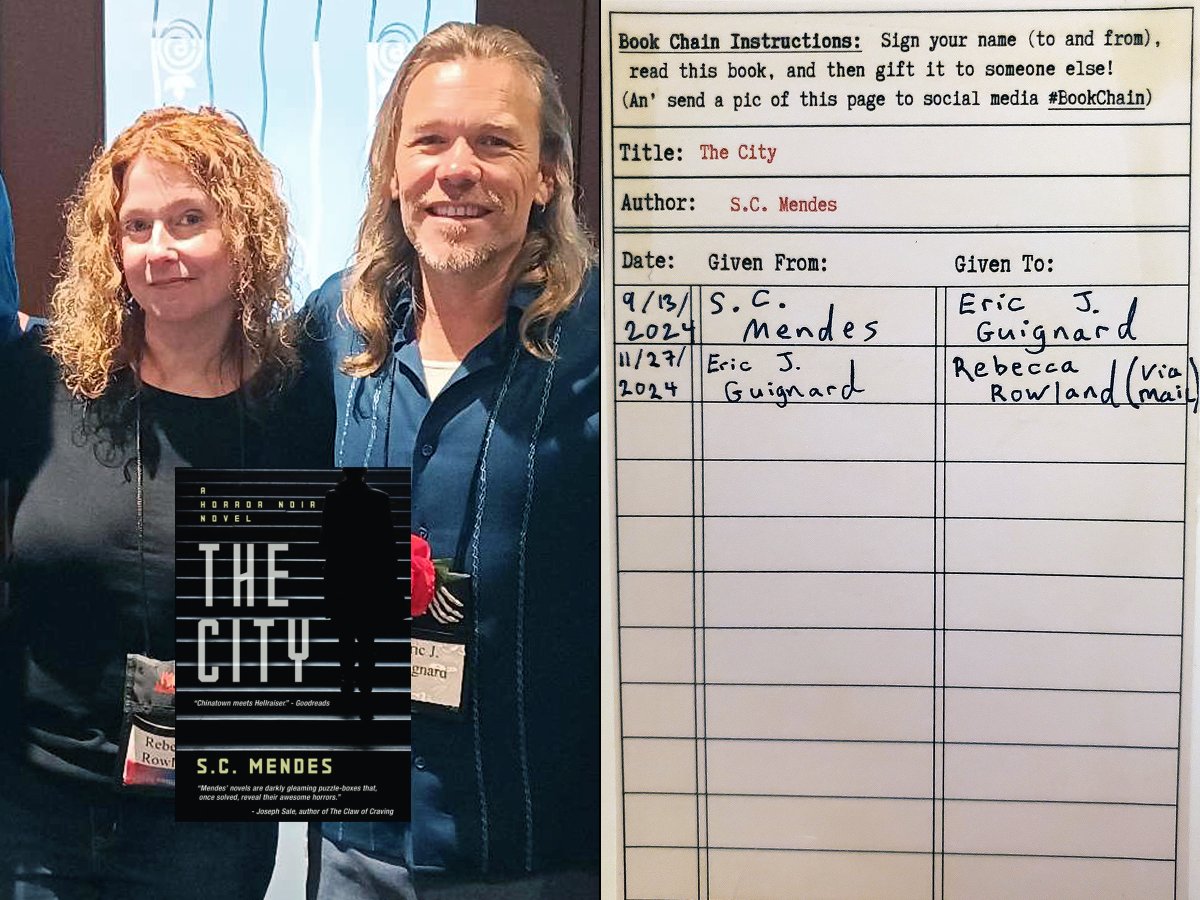 Rebe
Row
ric J.
gnard
A
HORROR NOIR
NOVEL
THE
CITY
"Chinatown meets Hellraiser." - Goodreads
S.C. MENDES
"Mendes' novels are darkly gleaming puzzle-boxes that,
once solved, reveal their awesome horrors."
- Joseph Sale, author of The Claw of Craving
Book Chain Instructions: Sign your name (to and from),
read this book, and then gift it to someone else!
(An' send a pic of this page to social media #BookChain)
Title: The City
Author: S.C. Mendes
Date: Given From: Given To:
9/13/ S. C. Eric J.
2024 Mendes Guignard
11/27/ Eric J. Rebecca (via
2024 Guignard Rowland mail)